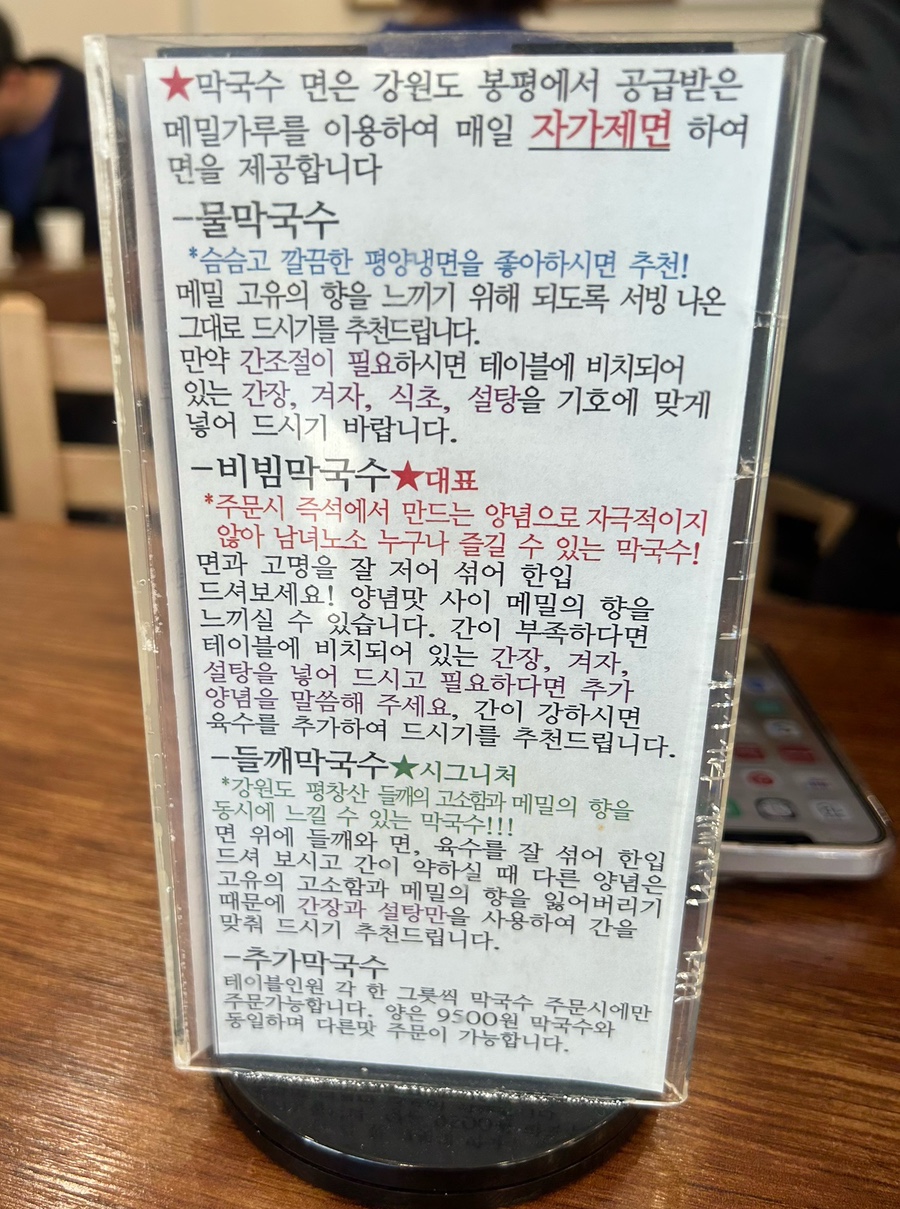 ★막국수 면은 강원도 봉평에서 공급받은
메밀가루를 이용하여 매일 자가제면 하여
면을 제공합니다
-물막국수
*슴슴고 깔끔한 평양냉면을 좋아하시면 추천!
메밀 고유의 향을 느끼기 위해 되도록 서빙 나온
그대로 드시기를 추천드립니다.
만약 간조절이 필요하시면 테이블에 비치되어
있는 간장, 겨자, 식초, 설탕을 기호에 맞게
넣어 드시기 바랍니다.
-비빔막국수★대표
*주문시 즉석에서 만드는 양념으로 자극적이지
않아 남녀노소 누구나 즐길 수 있는 막국수!
면과 고명을 잘 저어 섞어 한입
드셔보세요! 양념맛 사이 메밀의 향을
느끼실 수 있습니다. 간이 부족하다면
테이블에 비치되어 있는 간장, 겨자,
설탕을 넣어 드시고 필요하다면 추가
양념을 말씀해 주세요, 간이 강하시면
육수를 추가하여 드시기를 추천드립니다.
-들깨막국수★시그니처
*강원도 평창산 들깨의 고소함과 메밀의 향을
동시에 느낄 수 있는 막국수!!!
면 위에 들깨와 면, 육수를 잘 섞어 한입
드셔 보시고 간이 약하실 때 다른 양념은
고유의 고소함과 메밀의 향을 잃어버리기
때문에 간장과 설탕만을 사용하여 간을
맞춰 드시기 추천드립니다.
-추가막국수
테이블인원 각 한 그릇씩 막국수 주문시에만
주문가능합니다. 양은 9500원 막국수와
동일하며 다른맛 주문이 가능합니다.